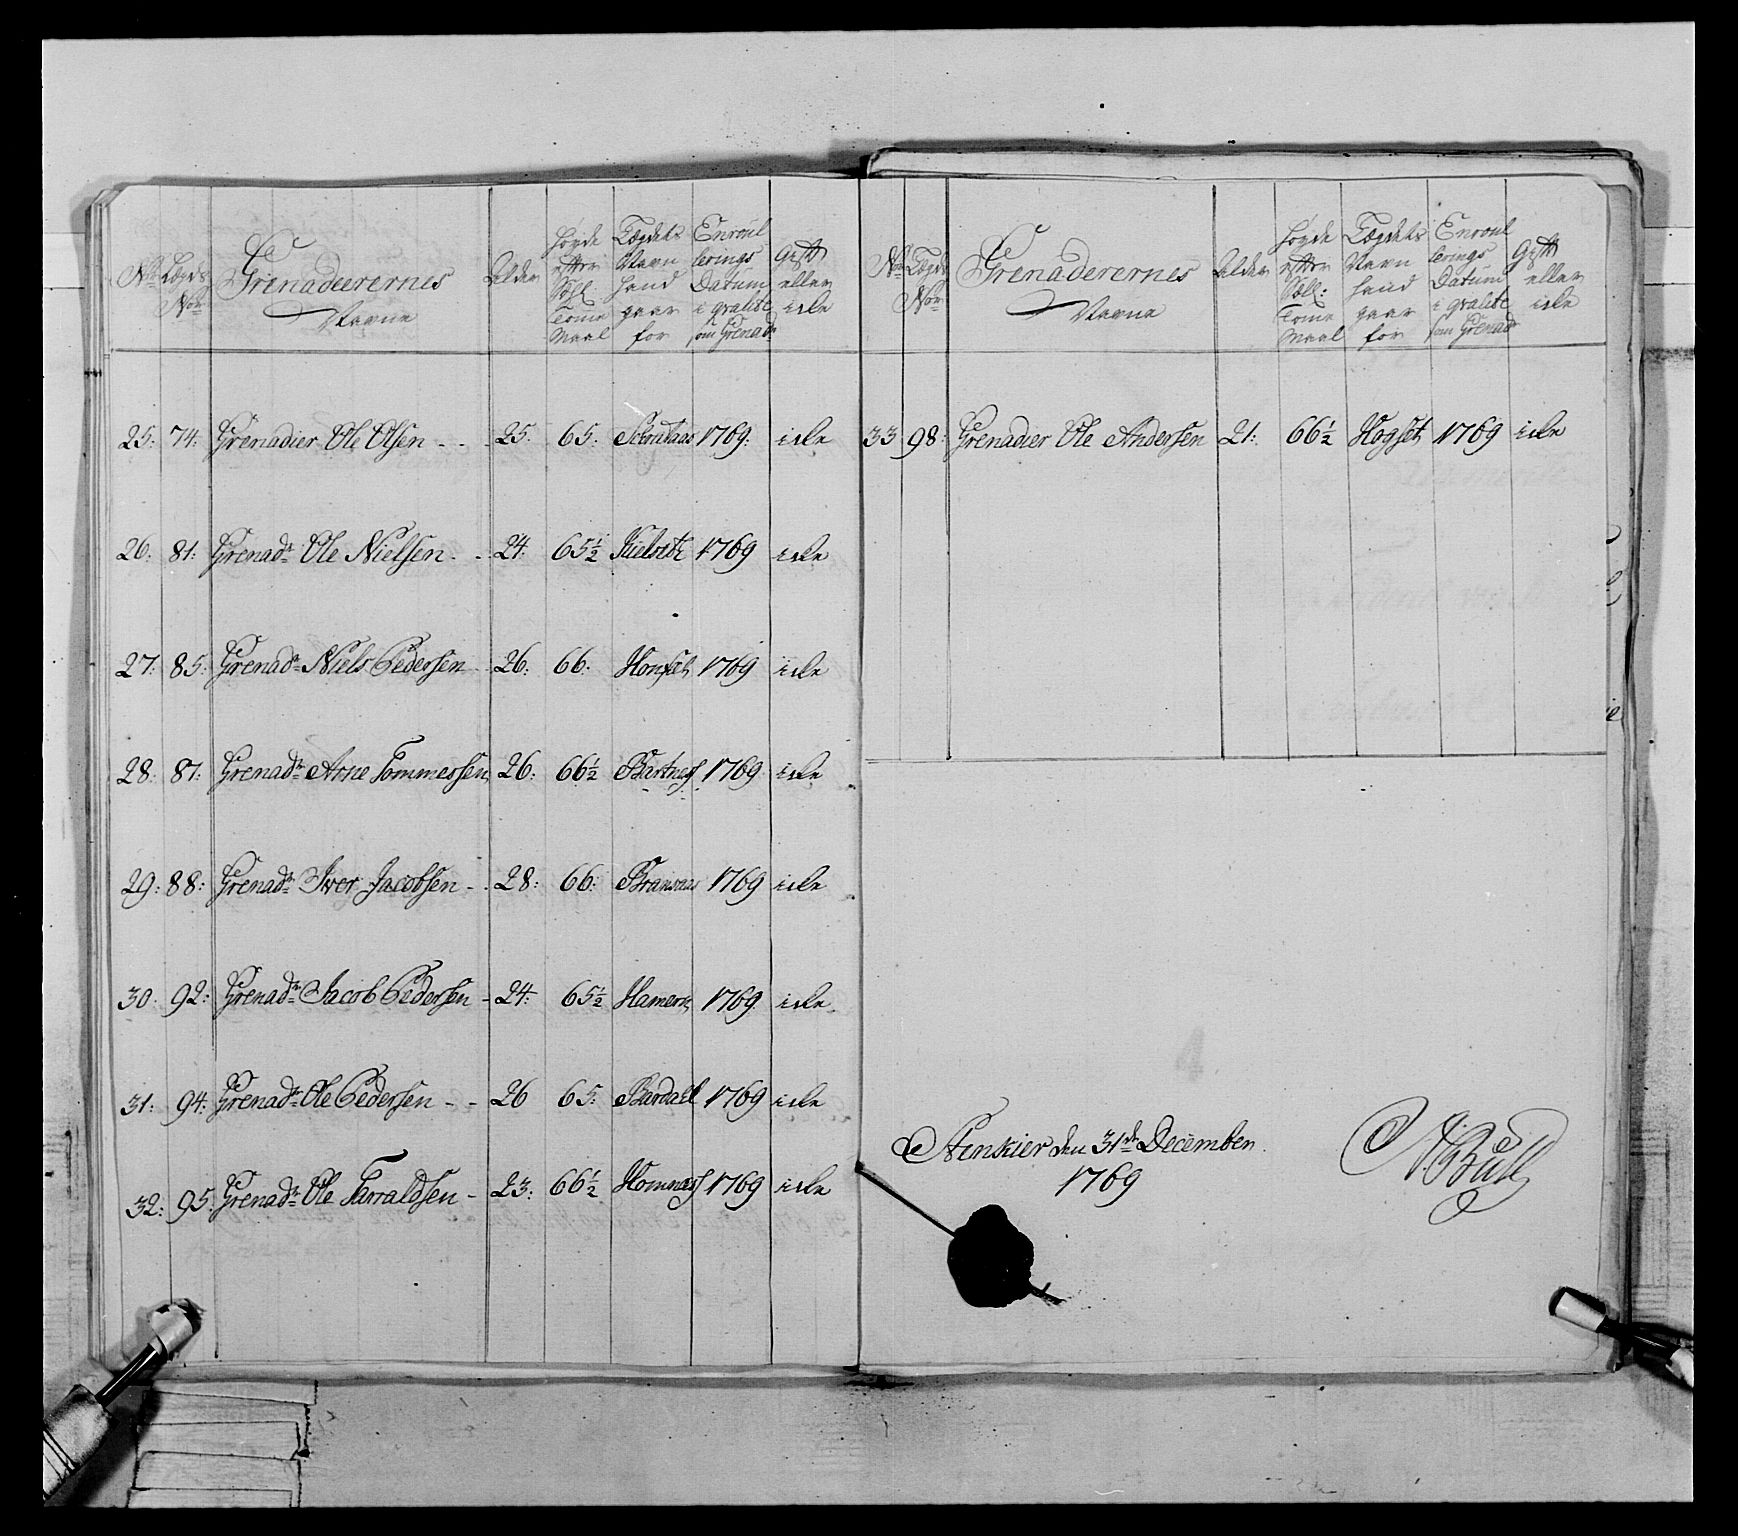 No Lægds Nor Grenadeerernes Navne Alder Høyde efter Siæl: Tome Maal Lægdets Navn hand gaar for Enroulerings Datum i qvalite som Grenadr Gift eller icke
25: 74: Grenadier Ole Olsen - - 25: 65: 1769: icke
26: 81: Grenadr Ole Nielsen - - 24: 65½ 1769 icke
27: 85: Grenadr Niels Pedersen - 26: 66: 1769 icke
28: 87: Grenadr Arne Tommessen 26: 66½ Bartnes 1769 icke
29: 88: Grenadr Iver Jacobsen - 28: 66: 1769 icke
30: 92: Grenadr Jacob Pedersen - 24: 65½ Hamem 1769 icke
31: 94: Grenadr Ole Pedersen - - 26 65: Bardall 1769 icke
32: 95: Grenadr Ole Tarraldsen - 23: 66½ Homnes 1769 icke
No Lægds Nor Grenaderernes Navne Alder Høyde efter Siæl: Tome Maal Lægdets Navn hand gaar for Enroulerings Datum i qvalite som Grenad Gift eller icke
33 98: Grenadier Ole Andersen 21: 66½ Hogset 1769 icke
Stenkier den 31de December
1769
Bull